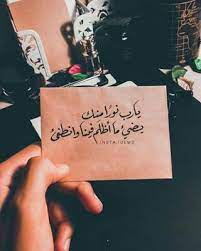 يارب نورًا منك
يضيء ما أظلم فينا وانطفئ
INSTA:USM3